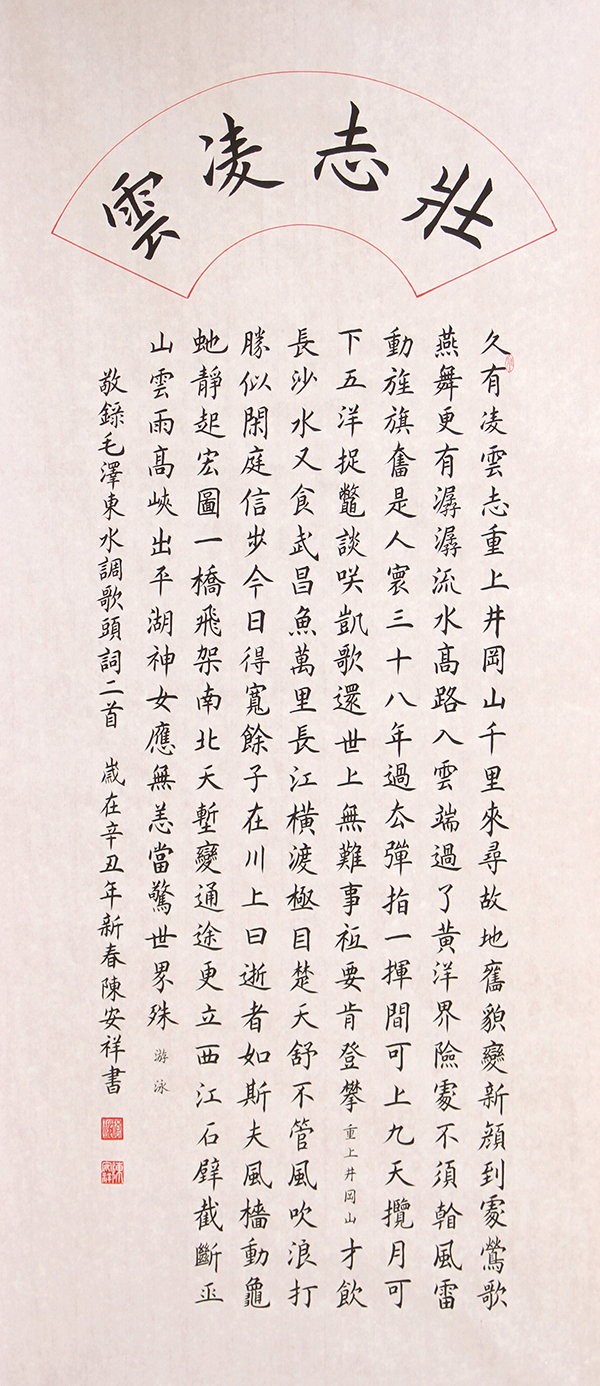 壯志凌雲
久有凌雲志重上井岡山千里來尋故地舊貌變新顏到處鶯歌
燕舞更有潺潺流水高路入雲端過了黃洋界險處不須看風雷
動旌旗奮是人寰三十八年過去彈指一揮間可上九天攬月可
下五洋捉鼈談咲凱歌還世上無難事祗要肯登攀 重上井岡山 才飲
長沙水又食武昌魚萬里長江橫渡極目楚天舒不管風吹浪打
勝似閑庭信步今日得寬餘子在川上曰逝者如斯夫風檣動龜
虵靜起宏圖一橋飛架南北天塹變通途更立西江石壁截斷巫
山雲雨高峽出平湖神女應無恙當驚世界殊 游泳
敬錄毛澤東水調歌頭詞二首 歲在辛丑年新春陳安祥書